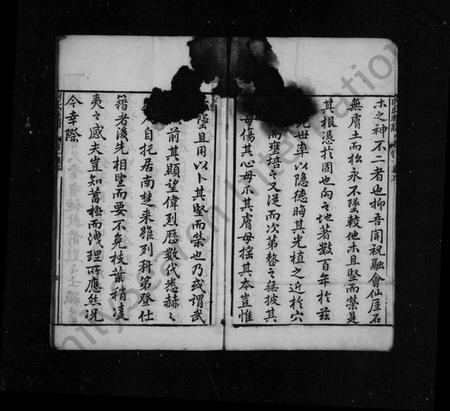 木之神不二者也抑吾聞祝融會仙崖石
無膚土而松永不墜較他木且堅而榮是
其根憑於固也向之地著數百年於茲
先世率以隱德晦其光植之近於穴
而壅培之又從而次第整之無披其
毋傷其心毋爪其膚毋搖其本豈惟
墜且用以卜其堅而榮也乃或謂武
前其顯望偉烈歷數代悉赫之
人自托居南楚來羅列科第登仕
籍者後先相望而要不免枝葉稍凌
夷之感夫豈知蓄極而洩理所應然況
今幸際